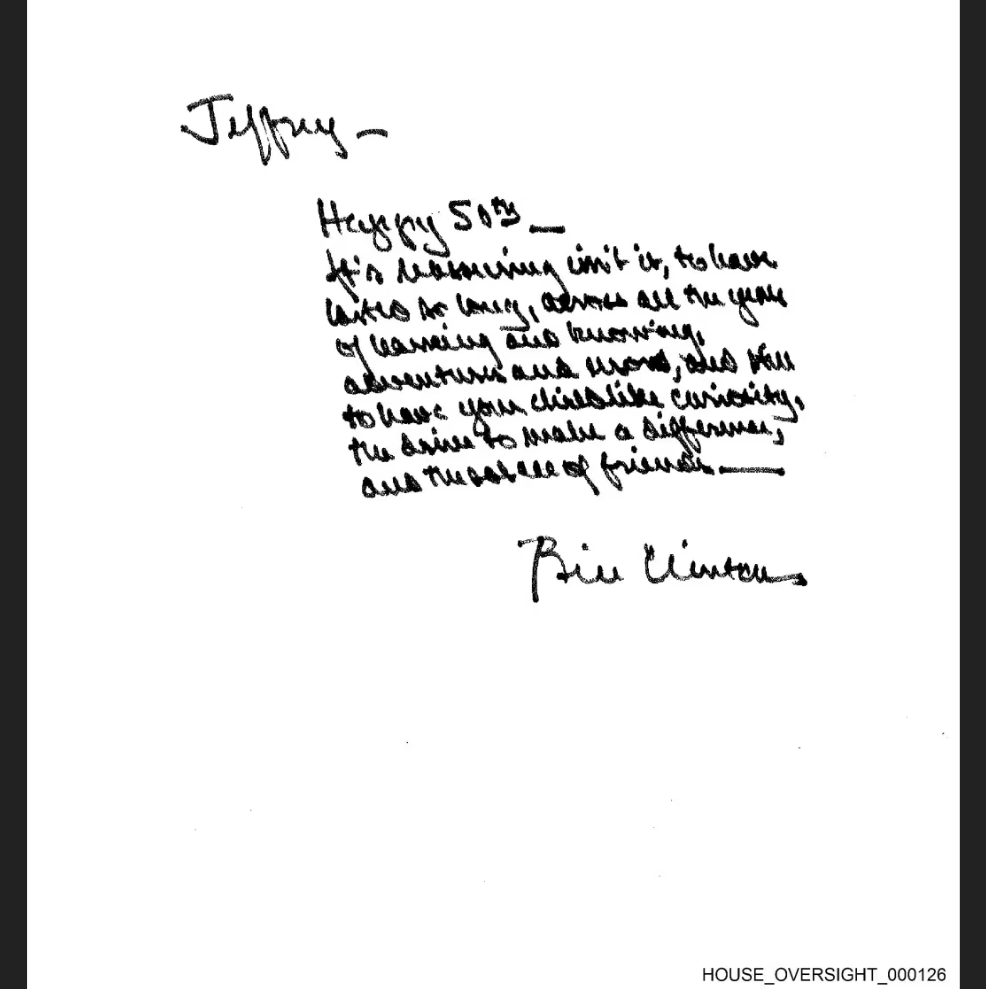 Jeffrey —
Happy 50th —
It's reassuring isn't it, to have
lasted as long, across all the years
of learning and knowing,
adventures and and still
to have your childlike curiosity,
the drive to make a difference,
and the solace of friends —
Bill Clinton
HOUSE_OVERSIGHT_000126